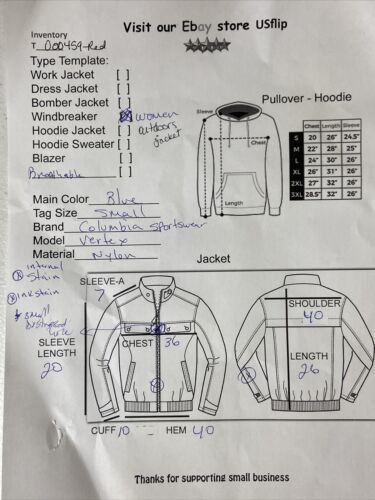 Visit our Ebay store USflip
Inventory
T_000459-Red
Type Template:
Work Jacket [ ]
Dress Jacket [ ]
Bomber Jacket [ ]
Windbreaker [X] women
Hoodie Jacket [ ] outdoors
Hoodie Sweater [ ] jacket
Blazer [ ]
Breathable [ ]
Pullover - Hoodie
Sleeve
Chest
Length
Chest Length Sleeve
S 20 26" 24.5"
M 22" 28" 25"
L 24" 30" 26"
XL 26" 31" 26"
2XL 27" 32" 26"
3XL 28.5" 32" 26"
Main Color Blue
Tag Size Small
Brand Columbia Sportswear
Model Vertex
Material Nylon
Jacket
internal
stain
ink stain
small
SLEEVE-A
7
SLEEVE
LENGTH
20
CHEST 36
SHOULDER
40
LENGTH
26
CUFF 10
HEM 40
Thanks for supporting small business